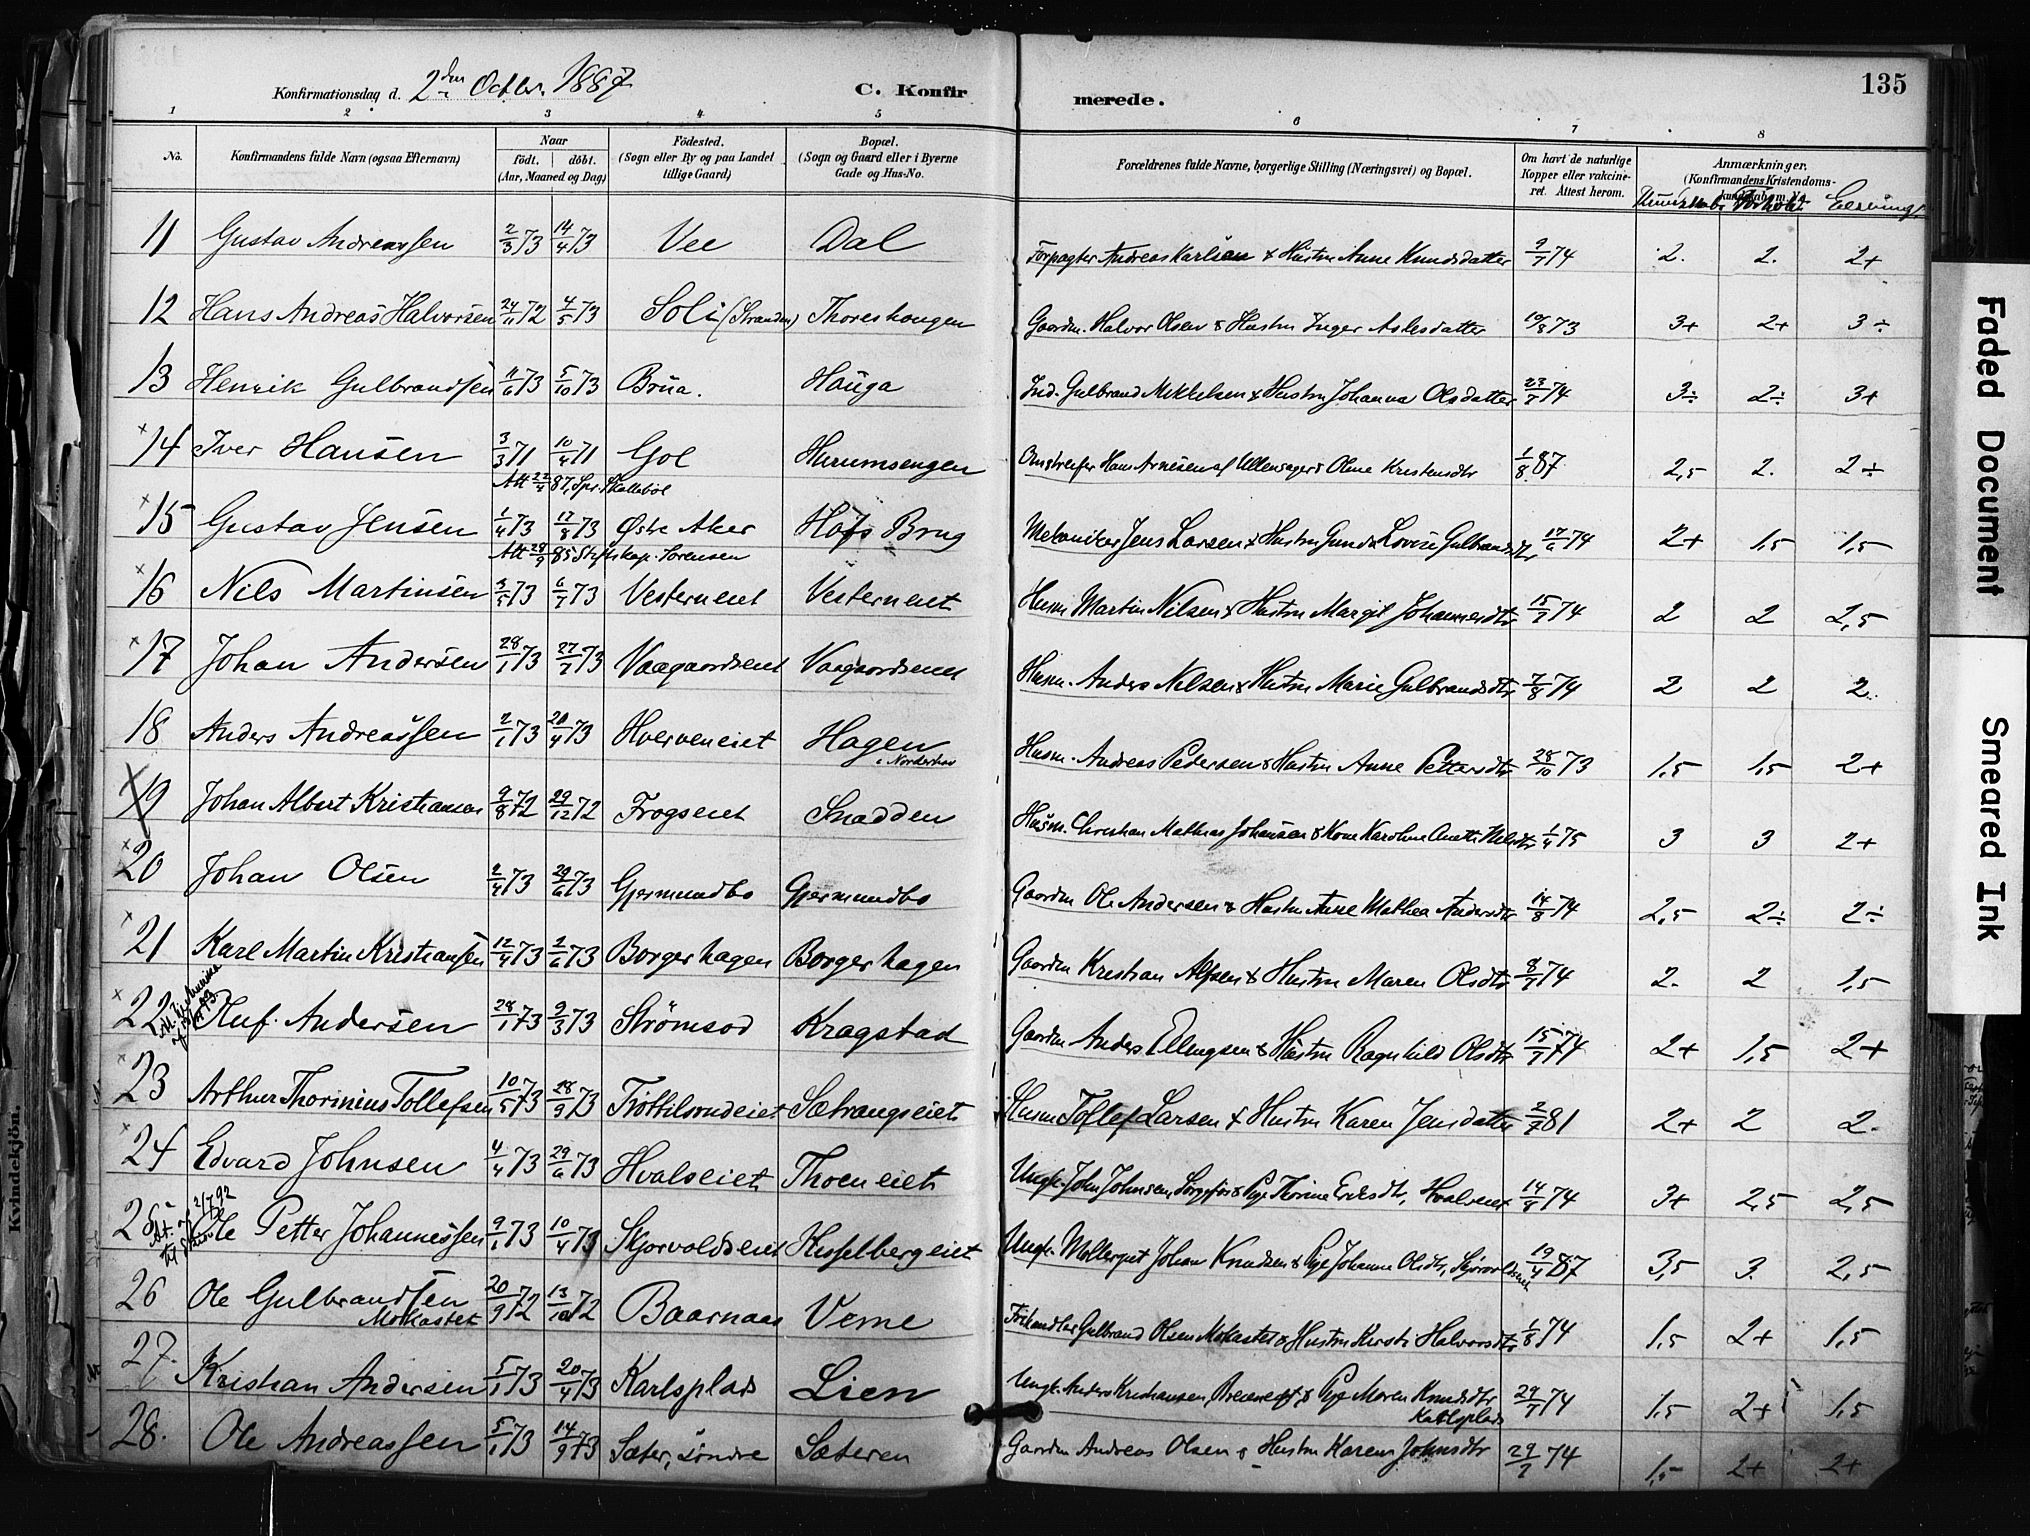 135
Konfirmationsdag d. 2den Octbr. 1887
C. Konfirmerede.
1 2 3 4 5 6 7 8
No. Konfirmandens fulde Navn (ogsaa Efternavn) Naar født. døbt. (Aar, Maaned og Dag) Fødested. (Sogn eller By og paa Landet tillige Gaard) Bopæl. (Sogn og Gaard eller i Byerne Gade og Hus-No. Forældrenes fulde Navne, borgerlige Stilling (Næringsvei) og Bopæl. Om havt de naturlige Kopper eller vakcineret. Attest herom. Anmærkninger. (Konfirmandens Kristendomskundskab m. V.)
Kundskab Forhold
11 Gustav Andreassen 2/3 73 14/4 73 Vee Dal Forpagter Andreas Karlsen & Hustru Anne Knudsdatter 9/7 74 2. 2. 2+
12 Hans Andreas Halvorsen 24/11 72 4/5 73 Soli (Stranden) Thoreshaugen Gaardm. Halvor Olsen & Hustru Inger Aslesdatter 19/8 73 3+ 2+ 3÷
13 Henrik Gulbrandsen 11/6 73 5/10 73 Brua. Hauga Ind. Gulbrand Mikkelsen & Hustru Johanna Olsdatter 23/7 74 3÷ 2÷ 3+
14 Iver Hansen 3/3 71 10/4 71 Gol Hurumsengen Omstreifer Hans Arnesen af Ullensager & Oline Kristensdtr 1/8 87 2,5 2. 2÷
Att 22/4 87, Spr. Skallebøl
15 Gustav Jensen 1/4 73 17/8 73 Østre Aker Hofs Brug Mekaniker Jens Larsen & Hustru Gunda Lovise Gulbrandsdtr 17/6 74 2+ 1,5 1,5
Att 28/9 85 Stiftskap. Sørensen
16 Nils Martinsen 3/5 73 6/7 73 Vesterneiet Vesterneiet Husm Martin Nilsen & Hustru Margit Johannesdtr 15/7 74 2 2 2,5
17 Johan Andersen 28/1 73 27/7 73 Vaagaardseiet Vaagaardseiet Husm. Anders Nilsen & Hustru Marie Gulbrandsdtr 7/8 74 2 2 2.
18 Anders Andreassen 2/1 73 20/4 73 Hverveneiet Hagen i Norderhov Husm. Andreas Pedersen & Hustru Anne Pettersdtr 28/10 73 1,5 1,5 2+
19 Johan Albert Kristiansen 9/8 72 29/12 72 Frogseiet Snadden Husm. Christian Mathias Johansen & Kone Karoline Anette Nilsdtr 1/4 75 3 3 2+
20 Johan Olsen 2/4 73 29/6 73 Gjermundbo Gjermundbo Gaardm Ole Andersen & Hustru Anne Mathea Andersdtr 14/8 74 2,5 2÷ 2÷
21 Karl Martin Kristiansen 12/4 73 2/6 73 Borgerhagen Borgerhagen Gaardm Kristian Alfsen & Hustru Maren Olsdtr 8/7 74 2. 2 1,5
22 Andersen 28/1 73 9/3 73 Strømsod Kragstad Gaardm Anders Ellingsen & Hustru Ragnhild Olsdtr 15/7 74 2+ 1,5 2+
23 Arthur Thorinius Tollefsen 10/5 73 28/9 73 Trøttilsrudeiet Sætrangseiet Husm Tollef Larsen & Hustru Karen Jensdatter 2/7 81 2+ 2 2.
24 Edvard Johnsen 4/4 73 29/6 73 Hvalseiet Thoeneiet Ungk. John Johnsen, & Pige Thorine Eriksdtr, Hvalseiet 14/8 74 3+ 2,5 2,5
25 Ole Petter Johannessen 9/1 73 10/4 73 Skjorvoldseiet Hesselbergeiet Ungk. Møllergut Johan Knudsen & Pige Johanne Olsdtr, Skjørvoldseiet 19/4 87 3,5 3. 2,5
26 Ole Gulbrandsen Mokastet 20/9 72 13/10 72 Baarnaas Veme Frihandler Gulbrand Olsen Mokastet & Hustru Kersti Halvorsdtr 1/8 74 1,5 2+ 1,5
27. Kristian Andersen 5/1 73 20/4 73 Karlsplads Lien Ungk. Anders Kristiansen, & Pige Maren Knudsdtr Karlsplads 29/7 74 1,5 2+ 1,5
28. Ole Andreassen 5/1 73 14/9 73 Sæter, søndre Sæteren Gaardm Andreas Olsen & Hustru Karen Johnsdtr 29/7 74 1,5 2+ 2+
Kvindekjøn.
Faded Document
Smeared Ink